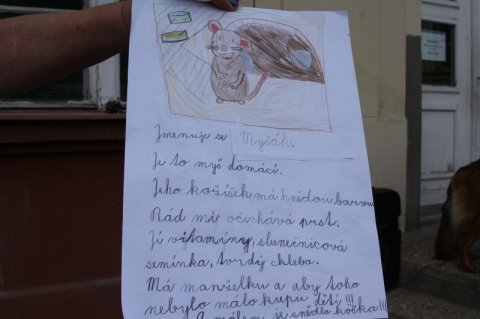 Jmenuje se Myšák.
Je to myš domácí.
Jeho kožíšek má hnědou barvu.
Rád mi očichává prst.
Jí vitamíny, slunečnicová
semínka, tvrdý chleba.
Má manželku a aby toho
nebylo málo kupu dětí!!!
A málem je snědla kočka!!!